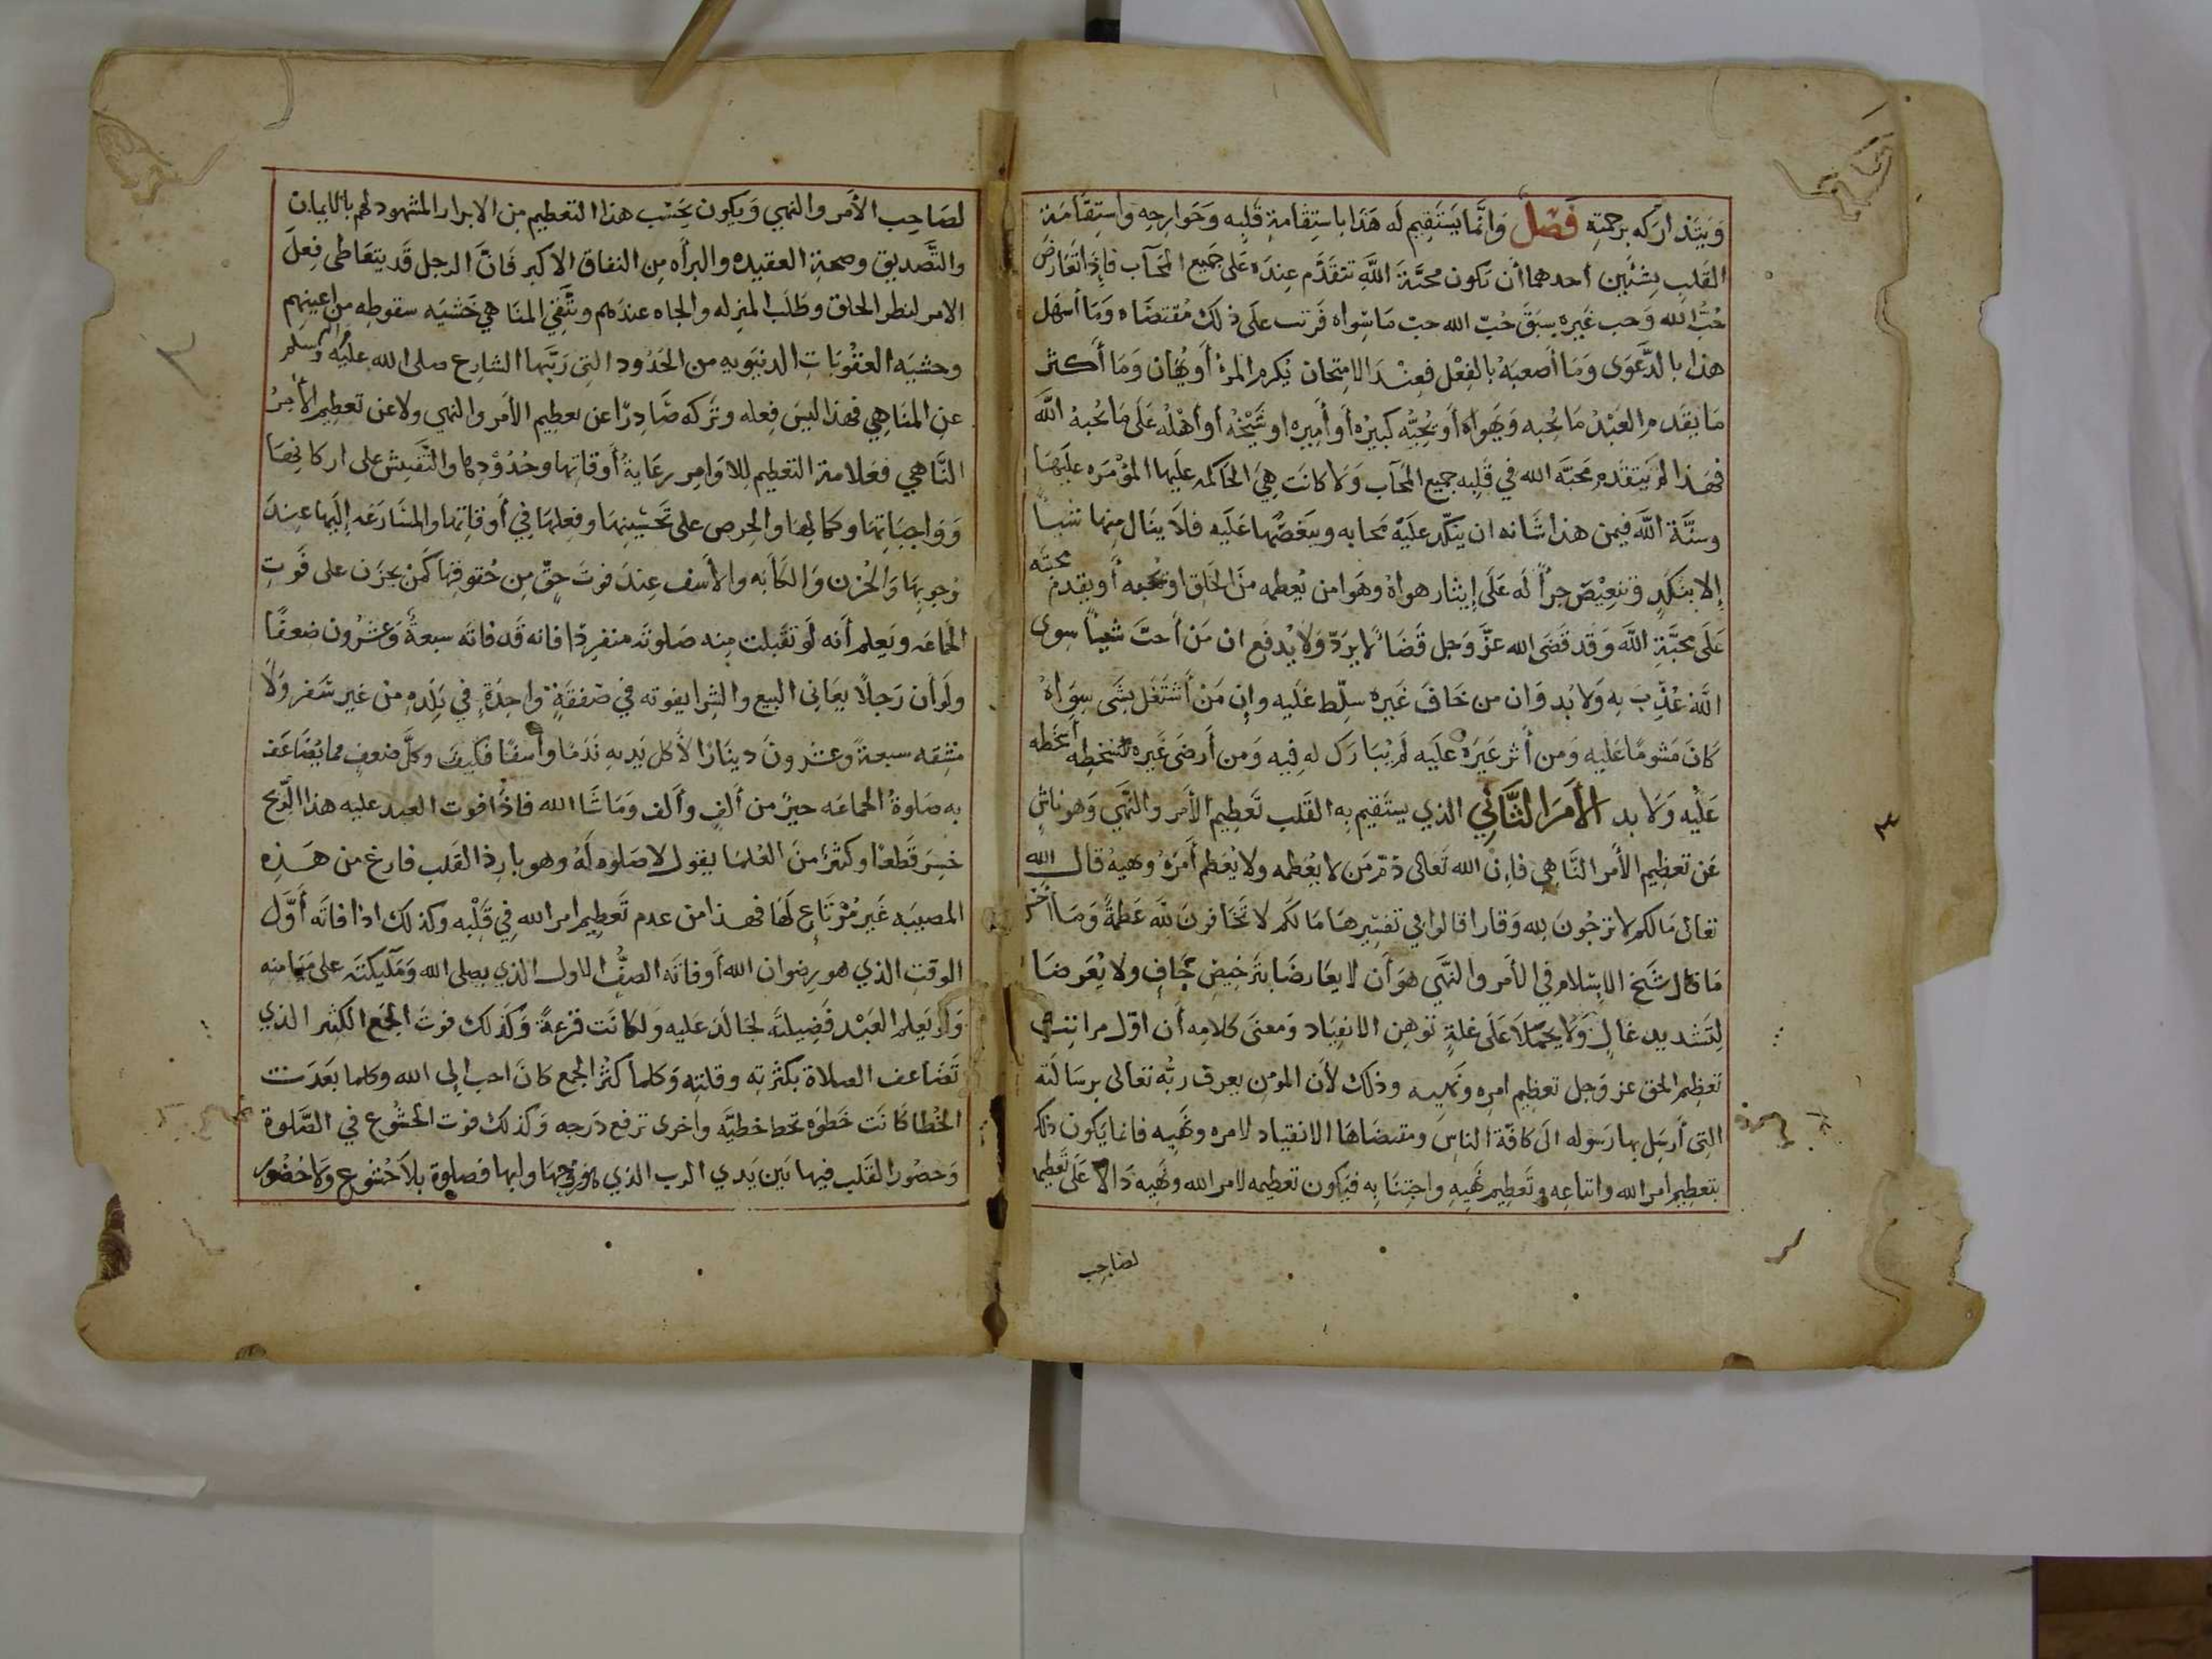 ويتداركه برحمته فصل وانما يستقيم له هذا باستقامة قلبه وجوارحه واستقامة
القلب بشئين أحدهما أن تكون محبة الله تتقدم عنده على جميع المحآب فإذا تعارض
حُبّ الله وحب غيره سبق حُبّ الله حب ما سواه فرتب على ذلك مقتضاه وما أسهل
هذا بالدعوى وما أصعبه بالفعل فعند الامتحان يُكرم المرءُ أو يُهان وما أكثر
ما يقدم العبد ما يُحبه ويهواه أو يحبُّه كبيره أو أميره او شيخه أو أهله على ما يحبه الله
فهذا لم يتقدم محبّة الله في قلبه جميع المحآب ولا كانت هي الحاكمه عليها المؤمره عليها
وسنّة الله فيمن هذا شانه ان ينكّد عليه محابه وينغصّها عليه فلا ينال منها شيأ
إلا بنكدٍ وتنغيص جزأً له على إيثار هواه وهوا من يُعظمه من الخلق او يُحبه أو يقدم محبته
على محبّة الله وقد قضى الله عزّ وجل قضاءً لا يردّ ولا يُدفع ان من أحبّ شيأً سوى
الله عُذّب به ولا بد وان من خاف غيره سلّط عليه وإن من أشتغل بشى سواه
كان مشومًا عليه ومن أثر غيره عليه لم يُبارك له فيه ومن أرضى غيره بسخطه أسخطه
عليه ولا بد الأمر الثّاني الذي يستقيم به القلب تعظيم الأمر والنّهي وهو ناشٍ
عن تعظيم الأمر النّاهي فإن الله تعالى ذمّ من لا يُعظمه ولا يُعظم أمره ونهيه قال الله
تعالى ما لكم لا ترجُون لله وقارا قالوا في تفسيرها ما لكم لا تخافون لله عظمةً وما أحسن
ما قال شيخ الاسلام في الأمر والنّهي هو أن لا يعارضا بترخيص جافٍ ولا يُعرضا
لتشديد غالٍ ولا يحملا على علةٍ توهن الانقياد ومعنى كلامه أن اوّل مراتب
تعظيم الحق عز وجل تعظيم امره ونهيه وذلك لأن المؤمن يعرف ربّه تعالى برسالته
التى أرسل بها رسوله الى كافّة الناس ومقتضاها الانقياد لامره ونهيه فانما يكون ذلك
بتعظيم امر الله واتباعه وتعظيم نهيه واجتنابه فيكون تعظيمه لامر الله ونهيه دالا على تعظيمه
لصاحب
لصاحب الأمر والنهي ويكون بحسب هذا التعظيم من الابرار المشهود لهم بالايمان
والتّصديق وصحة العقيده والبرأه من النفاق الاكبر فانّ الرجل قد يتعاطى فعل
الامر لنظر الخلق وطلب المنزله والجاه عندهم ويتّقي المناهي خشيه سقوطه من اعينهم
وخشيه العقوبات الدنيويه من الحدود التى رتّبها الشارع صلى الله عليه وسلم
عن المناهي فهذا ليس فعله وتركه صادرًا عن تعظيم الأمر والنهي ولا عن تعظيم الأمر
النّاهي فعلامة التعظيم للاوامر رعايةُ أوقاتها وحدُودها والتّفيش على اركانها
وواجباتها وكمالها والحرص على تحسينها وفعلها في أوقاتها والمسارعه إليها عند
وُجوبها والحُزن والكأبه والأسف عند فوت حقٍّ من حُقوقها كمن يحزن على فوت
الجماعه ويعلم أنه لو تقبلت منه صلوته منفردًا فانه قد فاته سبعةٌ وعشرُون ضعفًا
ولو أن رجلًا يعانى البيع والشرا يفوته في صفقةٍ واحدةٍ في بلده من غير سفر ولا
مشقه سبعةً وعشرونَ دينارًا لأكل يديه ندمًا وأسفًا فكيف وكلّ ضعفٍ مما يُضاعف
به صلوةُ الجماعه خيرٌ من ألفٍ وألف وما شا الله فاذا فوت العبد عليه هذا الرّبح
خسر قطعًا وكثيرٌ من العُلما يقول لا صلوه له وهو بارد القلب فارغ من هذه
المصيبه غير مُرتاعٍ لها فهذا من عدم تعظيم امر الله في قلبه وكذلك اذا فاته أوّل
الوقت الذي هو رضوان الله أو فاته الصفُّ الاول الذي يصلى الله وملٓيكته على ميامنه
ولو يعلم العبد فضيلته لجالد عليه ولكانت قرعةً وكذلك فوت الجمع الكثير الذي
تضاعف الصلاة بكثرته وقلته وكلما كثر الجمع كان احب إلى الله وكلما بعدت
الخُطا كانت خطوه تحط خطيّه واخرى ترفع درجه وكذلك فوت الخشُوع في الصّلوة
وحضور القلب فيها بين يدي الرب الذي هو روحها ولبها فصلوة بلا خشوع ولا حضور